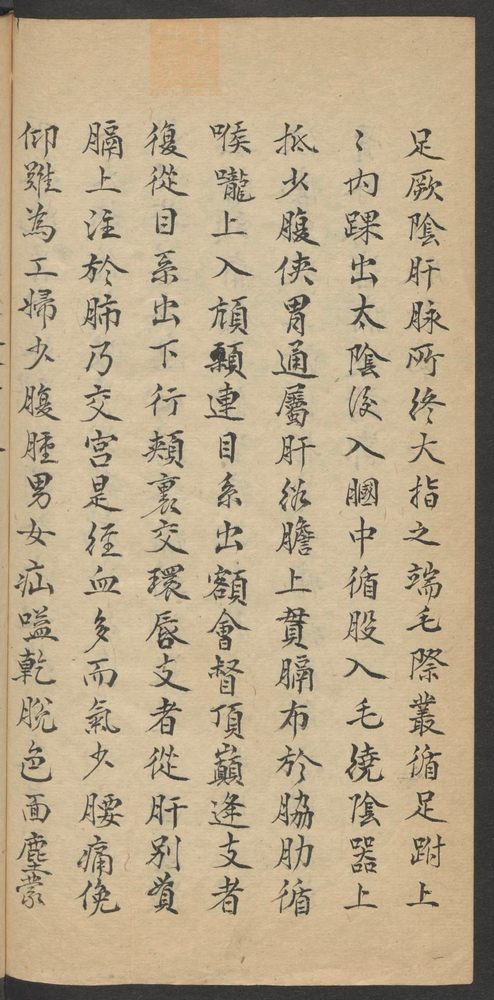 足厥陰肝脉所終大指之端毛際叢循足跗上
〻内踝出太陰後入膕中循股入毛繞陰器上
抵少腹俠胃通屬肝絡膽上貫膈布於脇肋循
喉嚨上入頏顙連目系出額會督頂巔逢支者
復從目系出下行頰裏交環唇支者從肝别貫
膈上注於肺乃交宫是經血多而氣少腰痛俛
仰難為工婦少腹腫男女疝嗌乾脫色面塵蒙